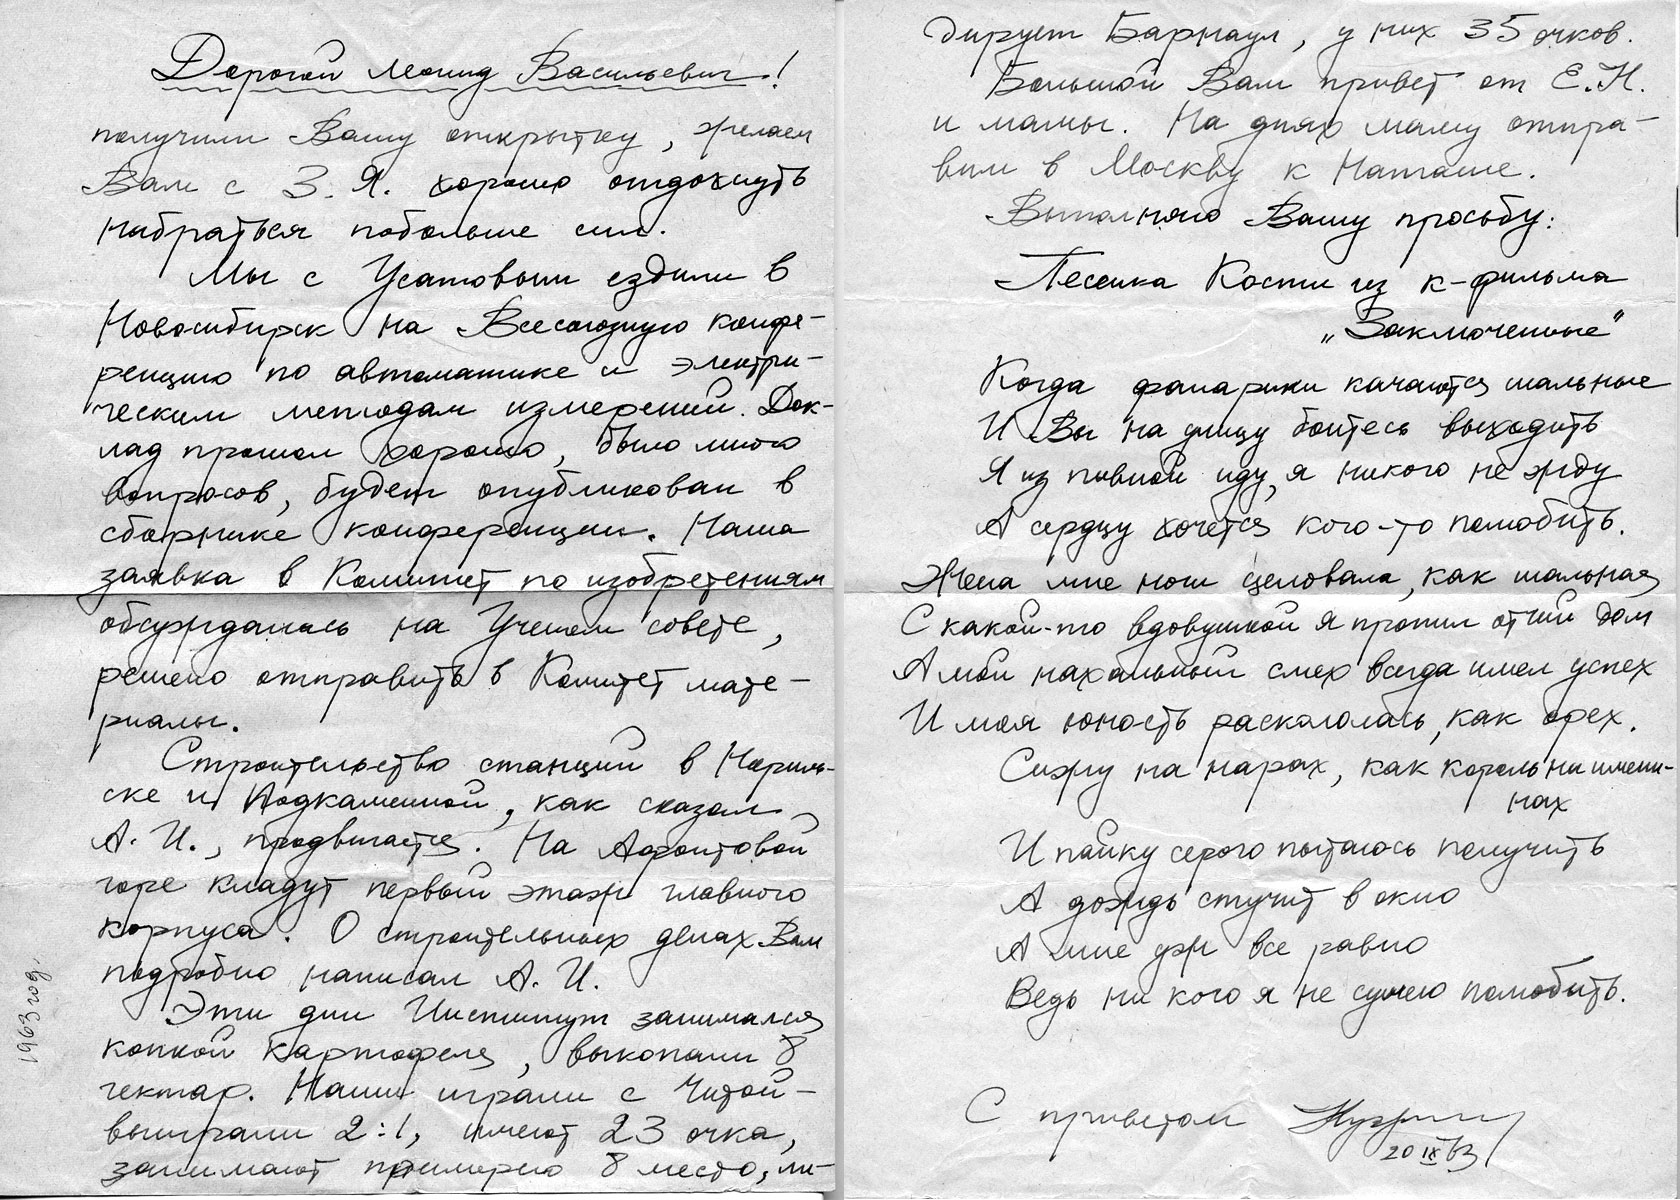 Дорогой Леонид Васильевич!
получили Вашу открытку, желаем
Вам с З.Я. хорошо отдохнуть
набраться побольше сил.
Мы с Усатовым ездили в
Новосибирск на Всесоюзную конфе-
ренцию по автоматике и электри-
ческим методам измерений. Док-
лад прошел хорошо, было много
вопросов, будет опубликован в
сборнике конференции. Наша
заявка в Комитет по изобретениям
обсуждалась на Ученом совете,
решено отправить в Комитет мате-
риалы.
Строительство станций в Нориль-
ске и Подкаменной, как сказал
А.И., продвигается. На
горе кладут первый этаж главного
корпуса. О строительных делах Вам
подробно написал А.И.
Эти дни Институт занимался
копкой картофеля, выкопали 8
гектар. Наши играли с Читой -
выиграли 2:1, имеют 23 очка,
занимают примерно 8 место, ли-
1963 год.
дирует Барнаул, у них 35 очков.
Большой Вам привет от Е.Н.
и мамы. На днях маму отпра-
вим в Москву к Наташе.
Выполняю Вашу просьбу:
Песенка Кости из к-фильма
„Заключенные"
Когда фонарики качаются шальные
И Вы на улицу боитесь выходить
Я из пивной иду, я никого не жду
А сердцу хочется кого-то полюбить.
Жена мне ноги целовала, как шальная
С какой-то вдовушкой я пропил отчий дом
А мой нахальный смех всегда имел успех
И моя юность раскололась, как орех.
Сижу на нарах, как король на имени-
нах
И пайку серого пытаюсь получить
А дождь стучит в окно
А мне уж все равно
Ведь ни кого я не сумею полюбить.
С приветом
20 IX 63